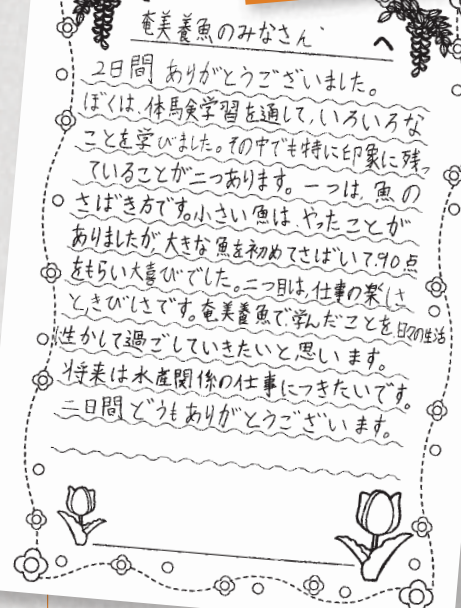 奄美養魚のみなさん
へ
2日間ありがとうございました。
ぼくは、体験学習を通して、いろいろな
ことを学びました。その中でも特に印象に残っ
ていることが二つあります。一つは、魚の
さばき方です。小さい魚は、やったことが
ありましたが、大きな魚を初めてさばいて90点
をもらい大喜びでした。二つ目は、仕事の楽しさ
と、きびしさです。奄美養魚で学んだことを、日々の生活
に生かして過ごしていきたいと思います。
将来は水産関係の仕事につきたいです。
二日間どうもありがとうございます。